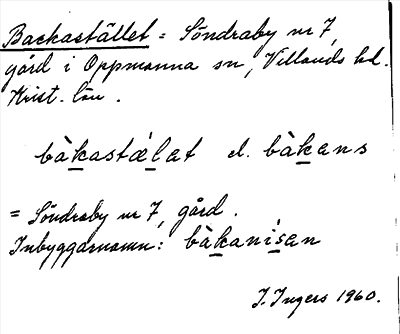 Backastället = Söndraby nr 7,
gård i Oppmanna sn, Villands hd.
Krist. län.
bàkastǽlat el. bàkans
= Söndraby nr 7, gård.
Inbyggarnamn: bàkanísan
I. Ingers 1960.